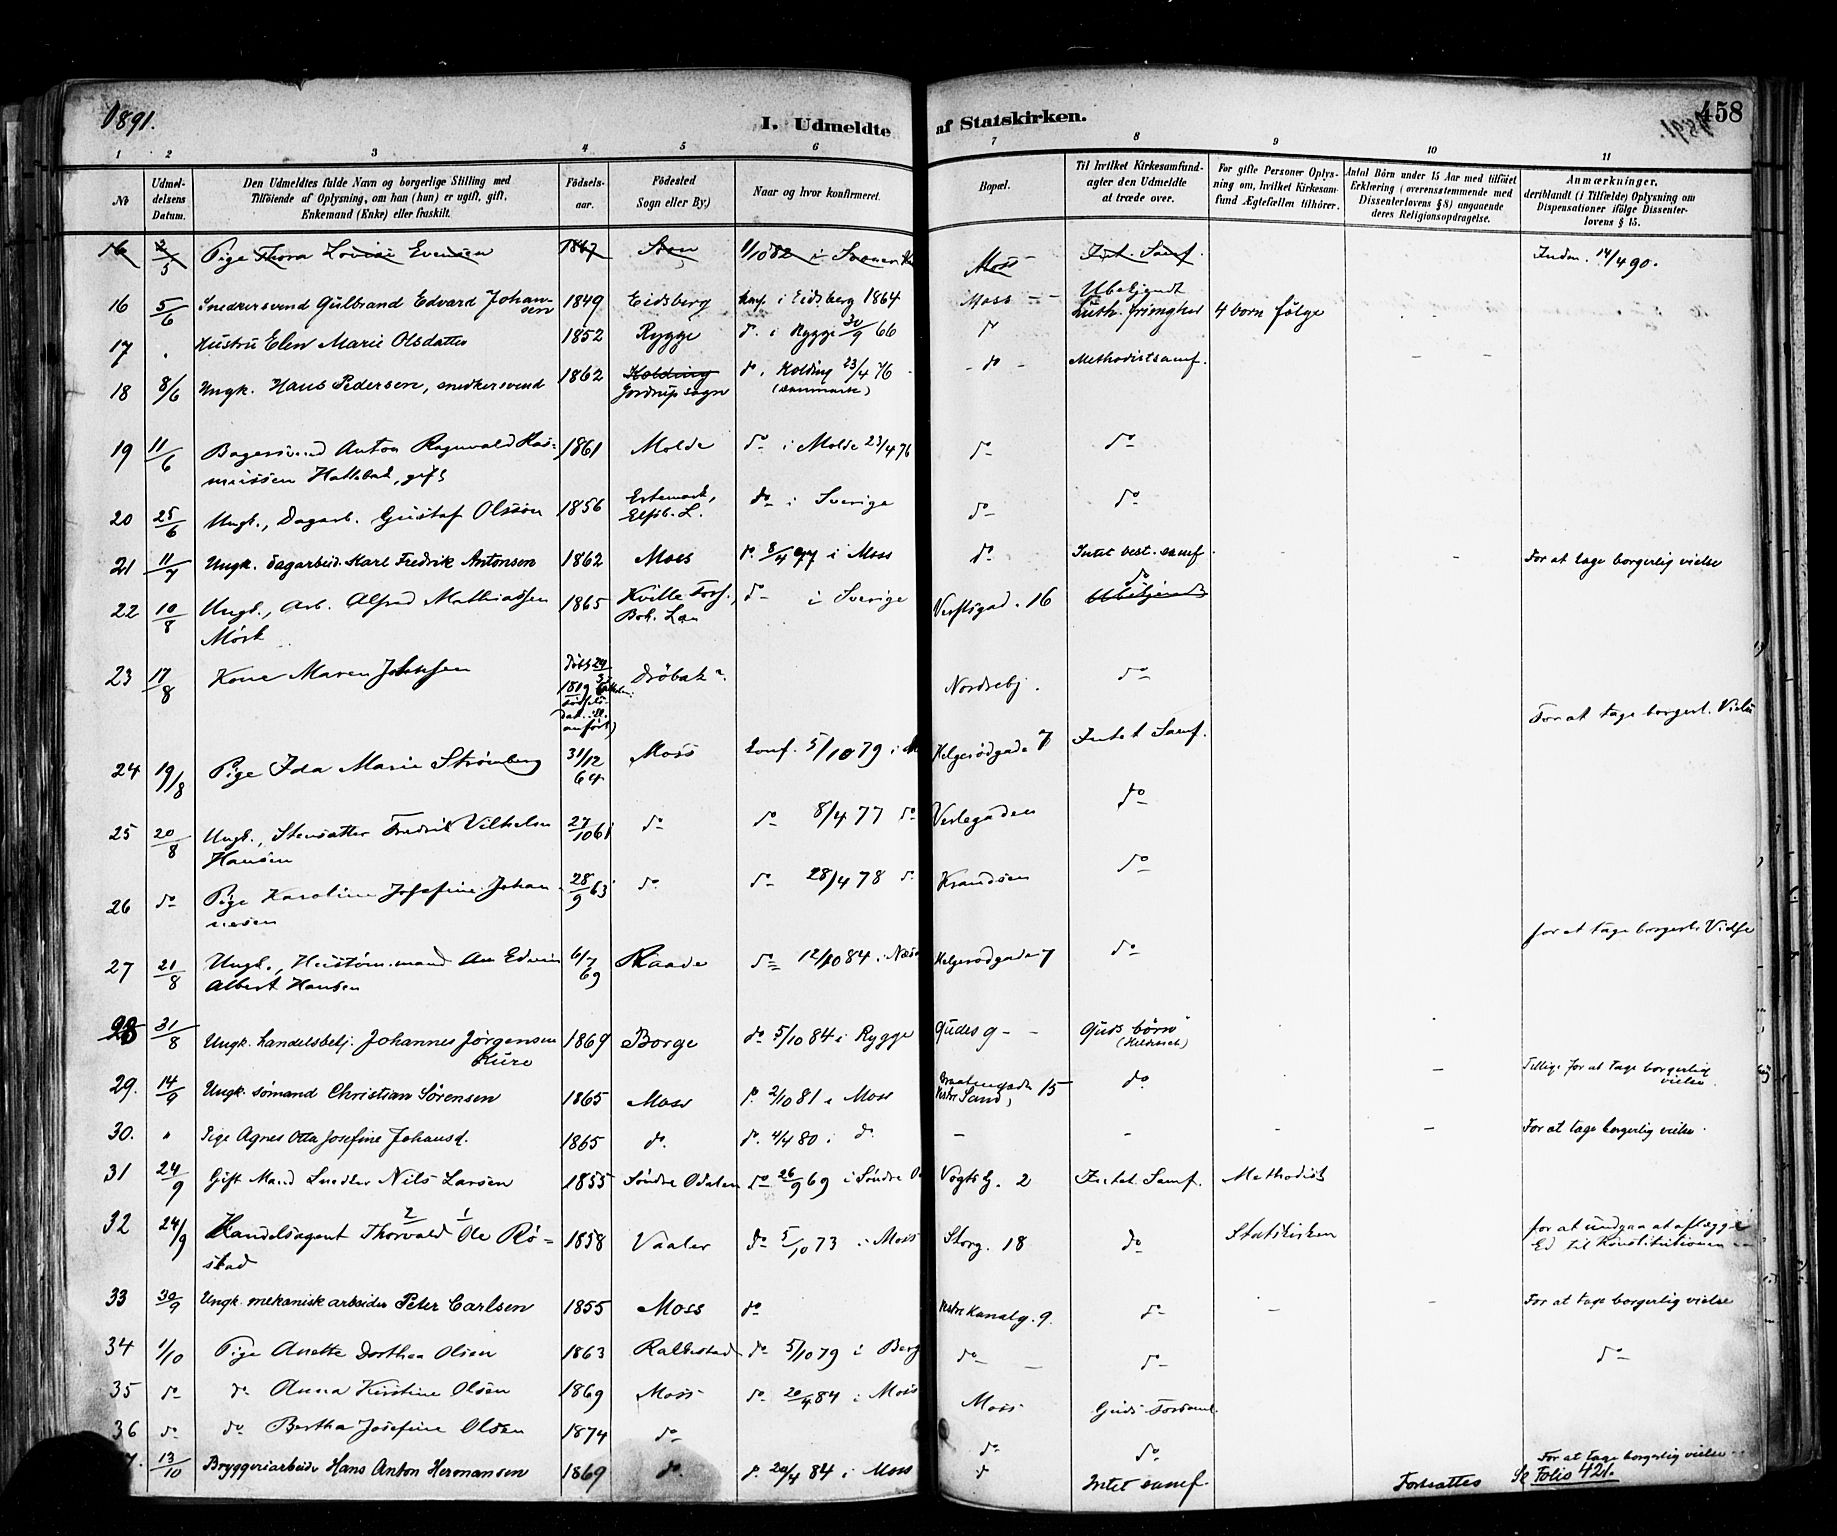 1891.
I. Udmeldte af Statskirken.
458
1 2 3 4 5 6 7 8 9 10 11
No
Udmeldelsens Datum.
Den Udmeldtes fulde Navn og borgerlige Stilling med Tilföiende af Oplysning, om han (hun) er ugift, gift, Enkemand (Enke) eller fraskilt.
Födselsaar.
Födested Sogn eller By.)
Naar og hvor konfirmeret.
Bopæl.
Til hvilket Kirkesamfund agter den Udmeldte at træde over.
For gifte Personer Oplysning om, hvilket Kirkesamfund Ægtefællen tilhörer.
Antal Börn under 15 Aar med tilföiet Erklæring (overensstemmende med Dissenterlovens § 8) angaaende deres Religionsopdragelse.
Anmærkninger, deriblandt (i Tilfælde) Oplysning om Dispensationer ifölge Dissenterlovens § 15.
16 2/5 Pige Thora Lovise Evensen 1867 Moss Int. Samf. Inden. 14/4 90.
16 5/6 Snedkersvend Gulbrand Edvard Johansen 1849 Eidsberg konf. i Eidsberg 1864 Moss Ubekjendt Luth. frimghed 4 born følge
17 " Hustru Elen Marie Olsdatter 1852 Rygge do. i Rygge 30/9 66 do
18 8/6 Ungk. Hans Pedersen, snedkersvend 1862 Kolding Gordrup sogn do. Kolding 23/4 76 (Danmark) do Methodistsamf.
19 11/6 Bagersvend Anton Ragnvald Rasmussen Hattebak, gift 1861 Molde do i Molde 23/4 76 do do
20 25/6 Ungk., Dagarb. Gustaf Olsson 1856 Ertemark, Elfsb. L. do i Sverige do do
21 11/7 Ungk. dagarbeid. Karl Fredrik Antonsen 1862 Moss do. 8/4 77 i Moss do Intet best. samf. For at tage borgerlig vielse
22 10/8 Ungk., Arb. Alfred Mathiassen Mörk 1865 Kville Fors., Boh. Län do i Sverige Verftsgad. 16 do Ubekjendt
23 17/8 Kone Maren Johnsen 1819 Dröbak Nordreby. do
24 19/8 Pige Ida Marie Strömberg 31/12 64 Moss konf. 5/10 79 i Helgerödgade 7 Intet Samf. For at tage borgerl. Vielse
25 20/8 Ungk., Stensætter Fredrik Vilhelm Hansen 27/10 61 do do 8/4 77 do Verlegaden do
26 do Pige Karoline Josefine Johannesen 28/9 63 do do 28/4 78 do Krandsen do
27 21/8 Ungk., Edvin Albert Hansen 6/7 69 Raade do 12/10 84 i Helgerödgade 7 do for at tage borgerl. Vielse
28 31/8 Ungk. handelsbetj. Johannes Jörgensen Kure 1869 Borge do 5/10 84 i Rygge Gudes g "Guds börn"
29. 14/9 Ungk. sömand Christian Sörensen 1865 Moss do. 2/10 81 i Moss 15 do Tillige for at tage borgerlig vielse.
30. " Pige Agnes Otta Josefine Johansd. 1865 do. do. 4/4 80 i do. For at tage borgerlig vielse.
31 24/9 Gift Mand Snedker Nils Larsen 1855 Söndre Odalen do 26/9 69 i Söndre Vogts g. 2 Intet Samf. Methodist
32 24/9 Handelsagent Thorvald Ole Röstad 2 1 1858 Vaaler do 5/10 73 i Moss Storg. 18 do Statskirken for at undgaa at aflægge Ed til Konstitutionen
33 30/9 Ungk. mekanisk arbeider Peter Carlsen 1855 Moss do Vestre Kanalg. 9. do For at tage borgerlig vielse
34 1/10 Pige Anette Dorthea Olsen 1863 Rakkestad do 5/10 79 i Berg do do do
35 do do Anna Kirstine Olsen 1869 Moss do 20/4 84 i Moss Moss Guds Forsaml.
36 do do Bertha Josefine Olsen 1874 do do do
7. 13/10 Bryggeriarbeider Hans Anton Hermansen 1869 do. do. 20/4 84 i Moss do Intet samf. For at tage borgerlig vielse
Fortsættes Se Folio 421.